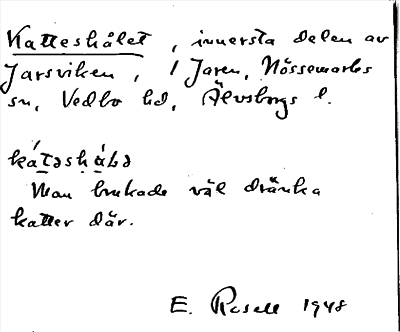 Katteshålet, innersta delen av
Jarsviken, i Jaren, Nössemarks
sn, Vedbo hd, Älvsborgs l.
kátəshàlə
Man brukade väl dränka
katter där.
E. Rosell 1948